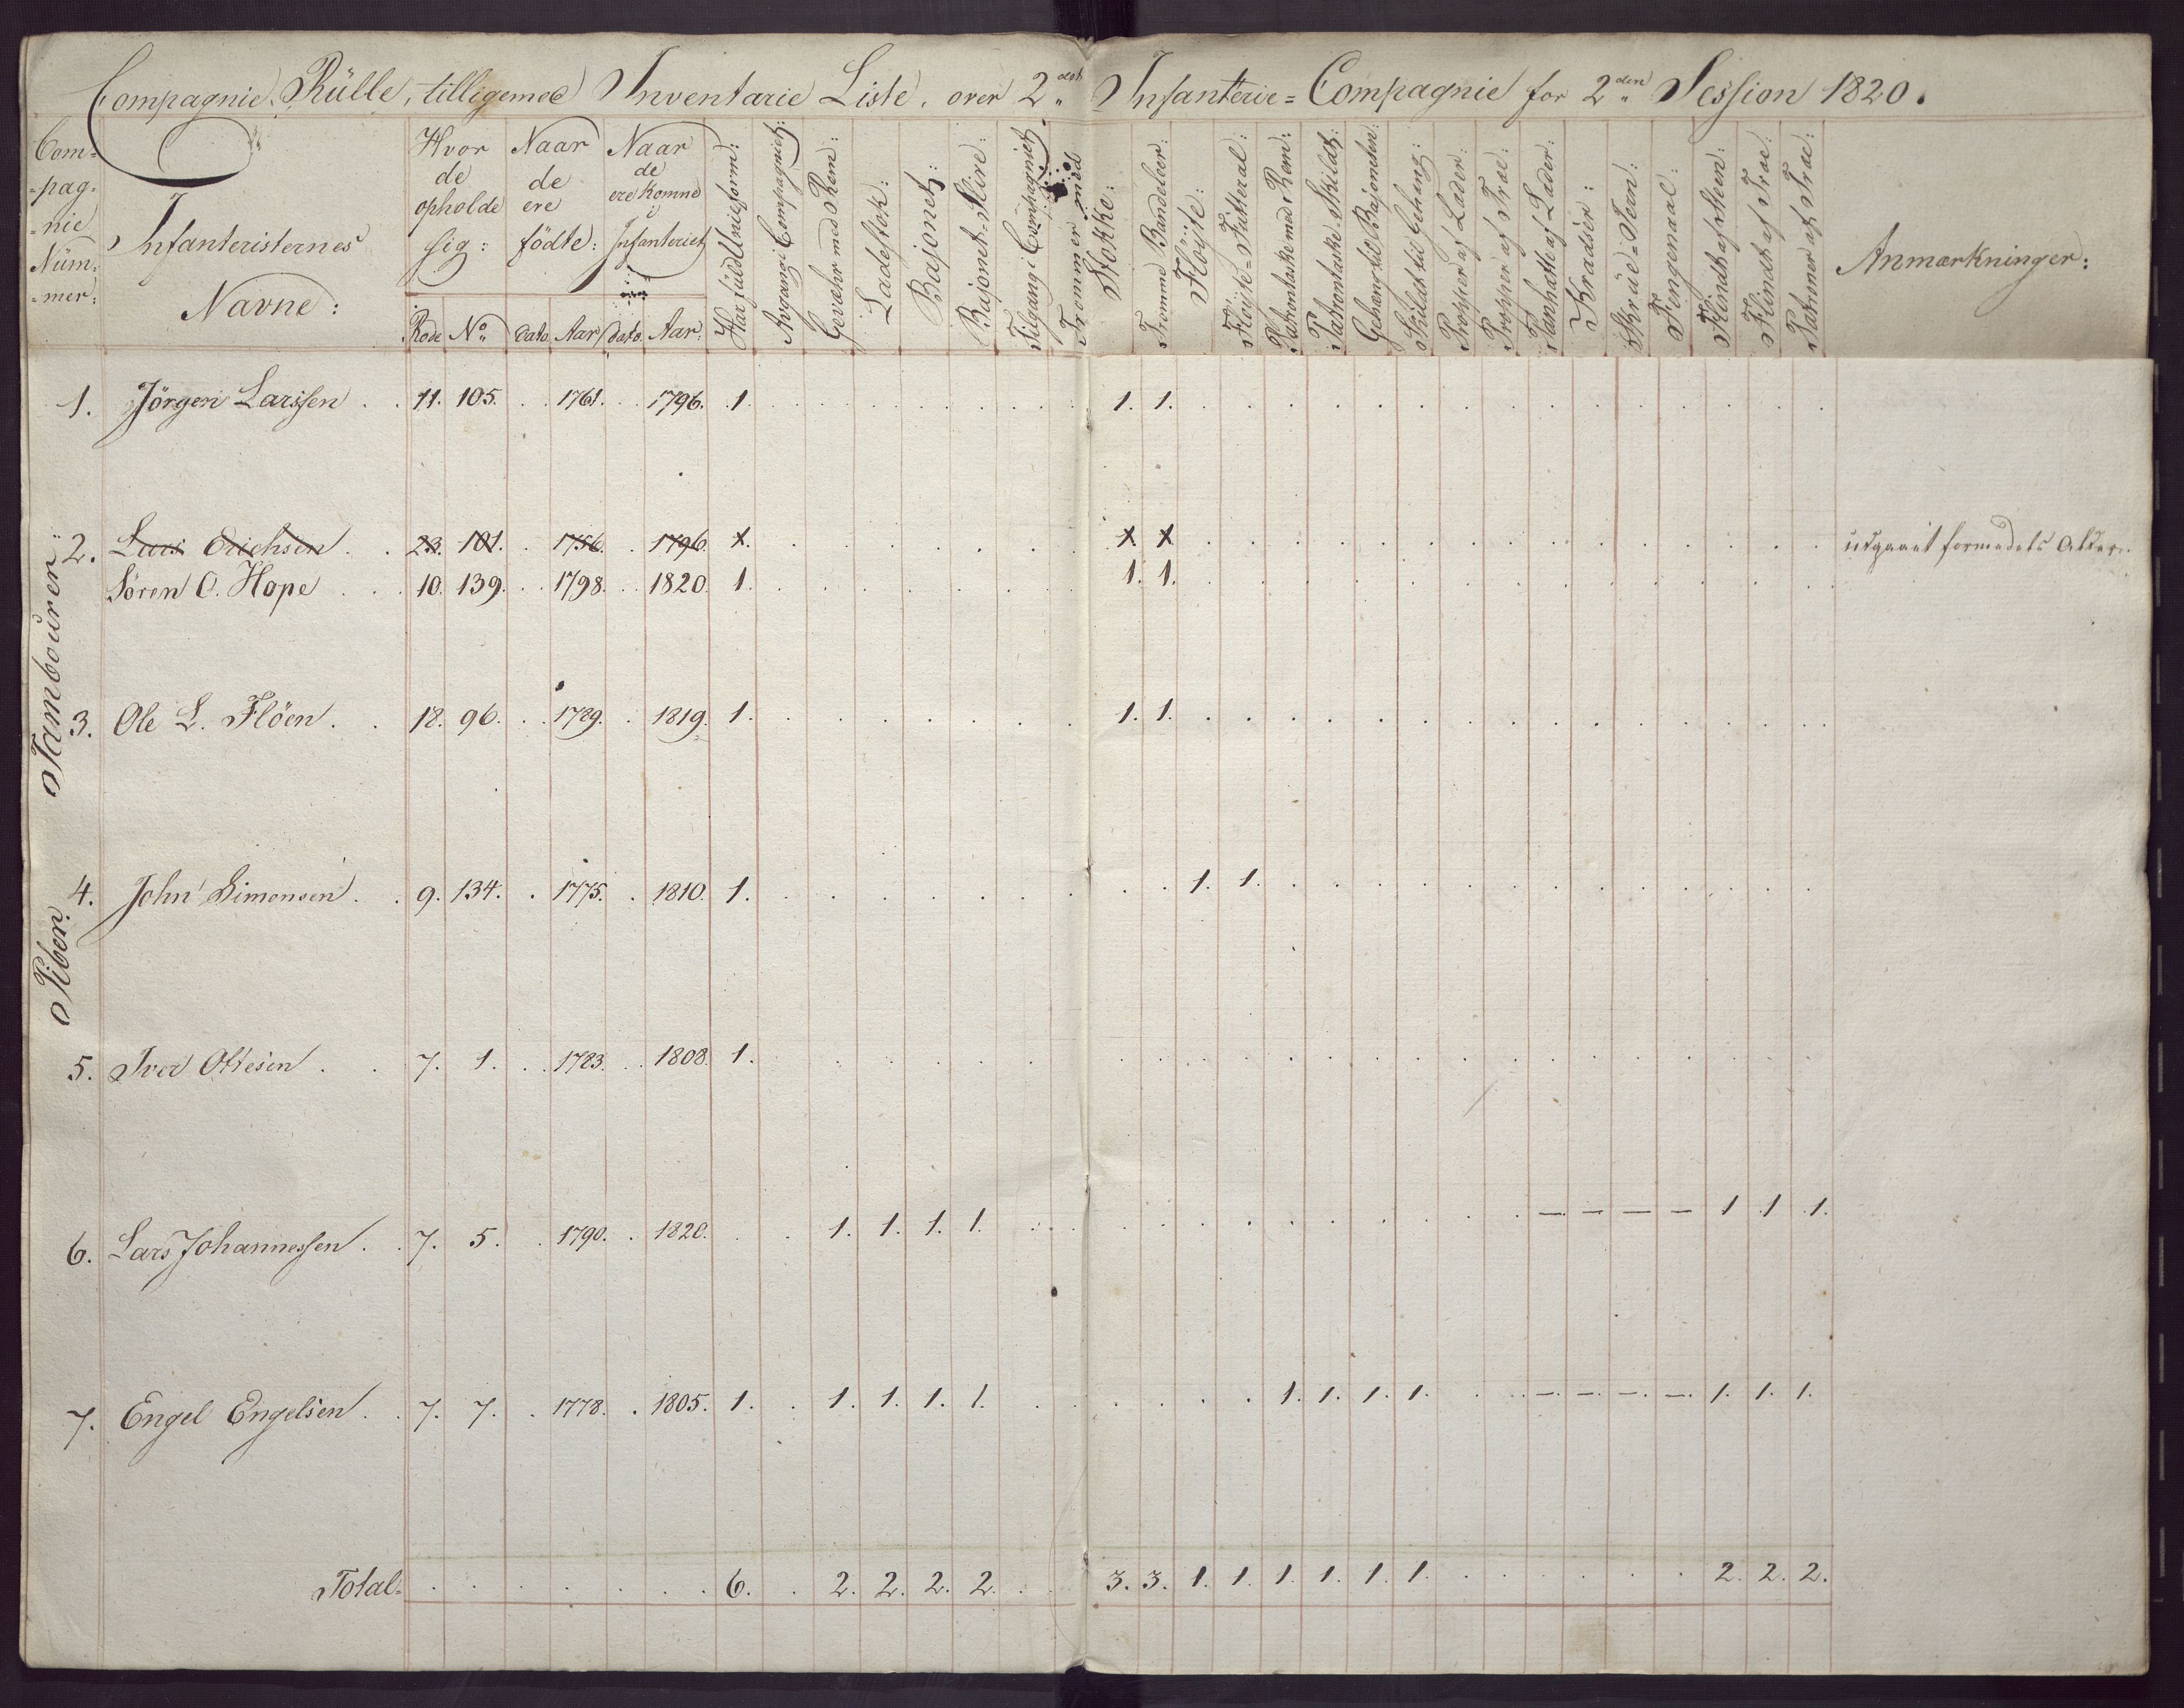 Compagnie Rülle, tilligemed Inventarie Liste, over 2det Infanterie=Compagnie for 2den Session 1820.
Com=
=pag=
=nie
Nüm=
=mer:
Infanteristernes
Navne:
Hvor
de
opholde
sig:
Rode No
Naar
de
ere
födte:
Dato Aar
Naar
de
ere komne
i
Infanteriet
dato. Aar:
Har füld Uniform:
Avgang i Compagniet:
Geværhr med Rem:
Ladestok:
Bajonet:
Bajonet-Slire:
Tilgang i Compagniet
Trommer med
Stokke:
Tromme Bandeler:
Flöyte:
Flöyte=Fütteral:
Patrontaske med Rem:
Patrontaske-Skildt:
Gehæng til Bajonetten:
Skildt til Gehæng:
Propper af Læder:
Propper af Træ:
Panhatte af Læder:
Kradser:
Skrüe=Jern:
Fængenaal:
Flindt af Steen:
Flindt af Træ:
Patroner af Træ:
Anmærkninger:
Tambourer
1. Jörgen Larssen . . 11. 105. . . 1761. . . 1796. 1. 1. 1.
2. Lars Erichsen . . 23. 101. . 1756. . 1796. 1. 1. 1. udgaaet formedels Alder.
Sören O. Hope . . . 10. 139. . . 1798. . . 1820. 1. 1. 1.
3. Ole L. Flöen . . 18. 96. . . 1789. . 1819. 1. 1. 1.
Piber
4. John Simonsen . . 9. 134. . 1775. . 1810. 1. 1. 1.
5. Iver Ottesen . . 7. 1. . . 1783. . . 1808. 1.
6. Lars Johannessen . . 7. 5. . 1790. . 1820. . . 1. 1. 1. 1. — — — — 1 1 1.
7. Engel Engelsen . . 7. 7. . 1778. . 1805. 1. . 1. 1. 1. 1. 1. 1. 1. 1. — — — — 1. 1. 1.
Total= 6. . 2. 2. 2. 2. 3. 3. 1. 1. 1. 1. 1. 1. 2. 2. 2.